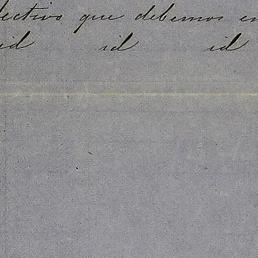 lectivo que debemos en
id id id